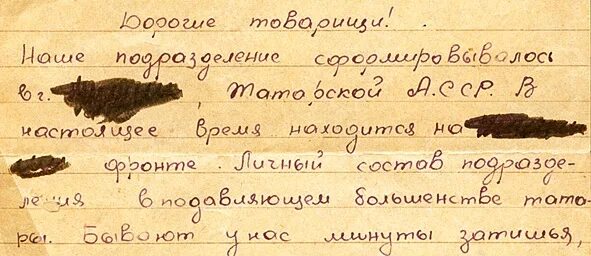 Дорогие товарищи!
Наше подразделение сформировывалось
в г. , Татарской А.ССР. В
настоящее время находится на
фронте. Личный состав подразде-
ления в подавляющем большенстве тата-
ры. Бывают у нас минуты затишья,